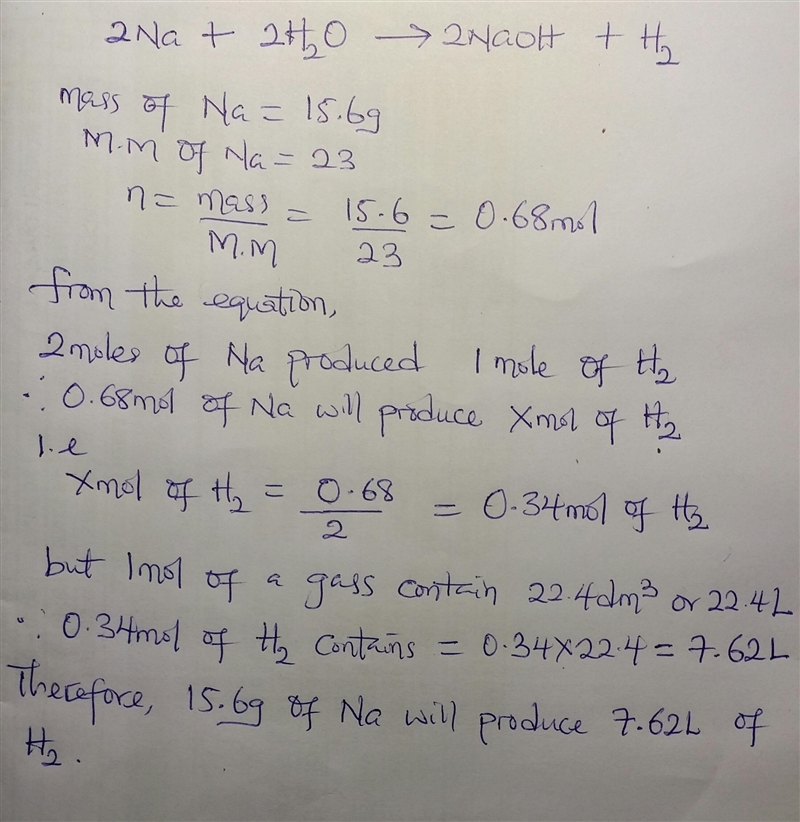 2Na + 2H₂O → 2NaOH + H₂
mass of Na = 15.6g
M.M of Na = 23
n = mass/M.M = 15.6/23 = 0.68mol
from the equation,
2moles of Na produced 1 mole of H₂
∴ 0.68mol of Na will produce Xmol of H₂
i.e
Xmol of H₂ = 0.68/2 = 0.34mol of H₂
but 1mol of a gass contain 22.4dm³ or 22.4L
∴ 0.34mol of H₂ contains = 0.34×22.4 = 7.62L
Therefore, 15.6g of Na will produce 7.62L of
H₂.